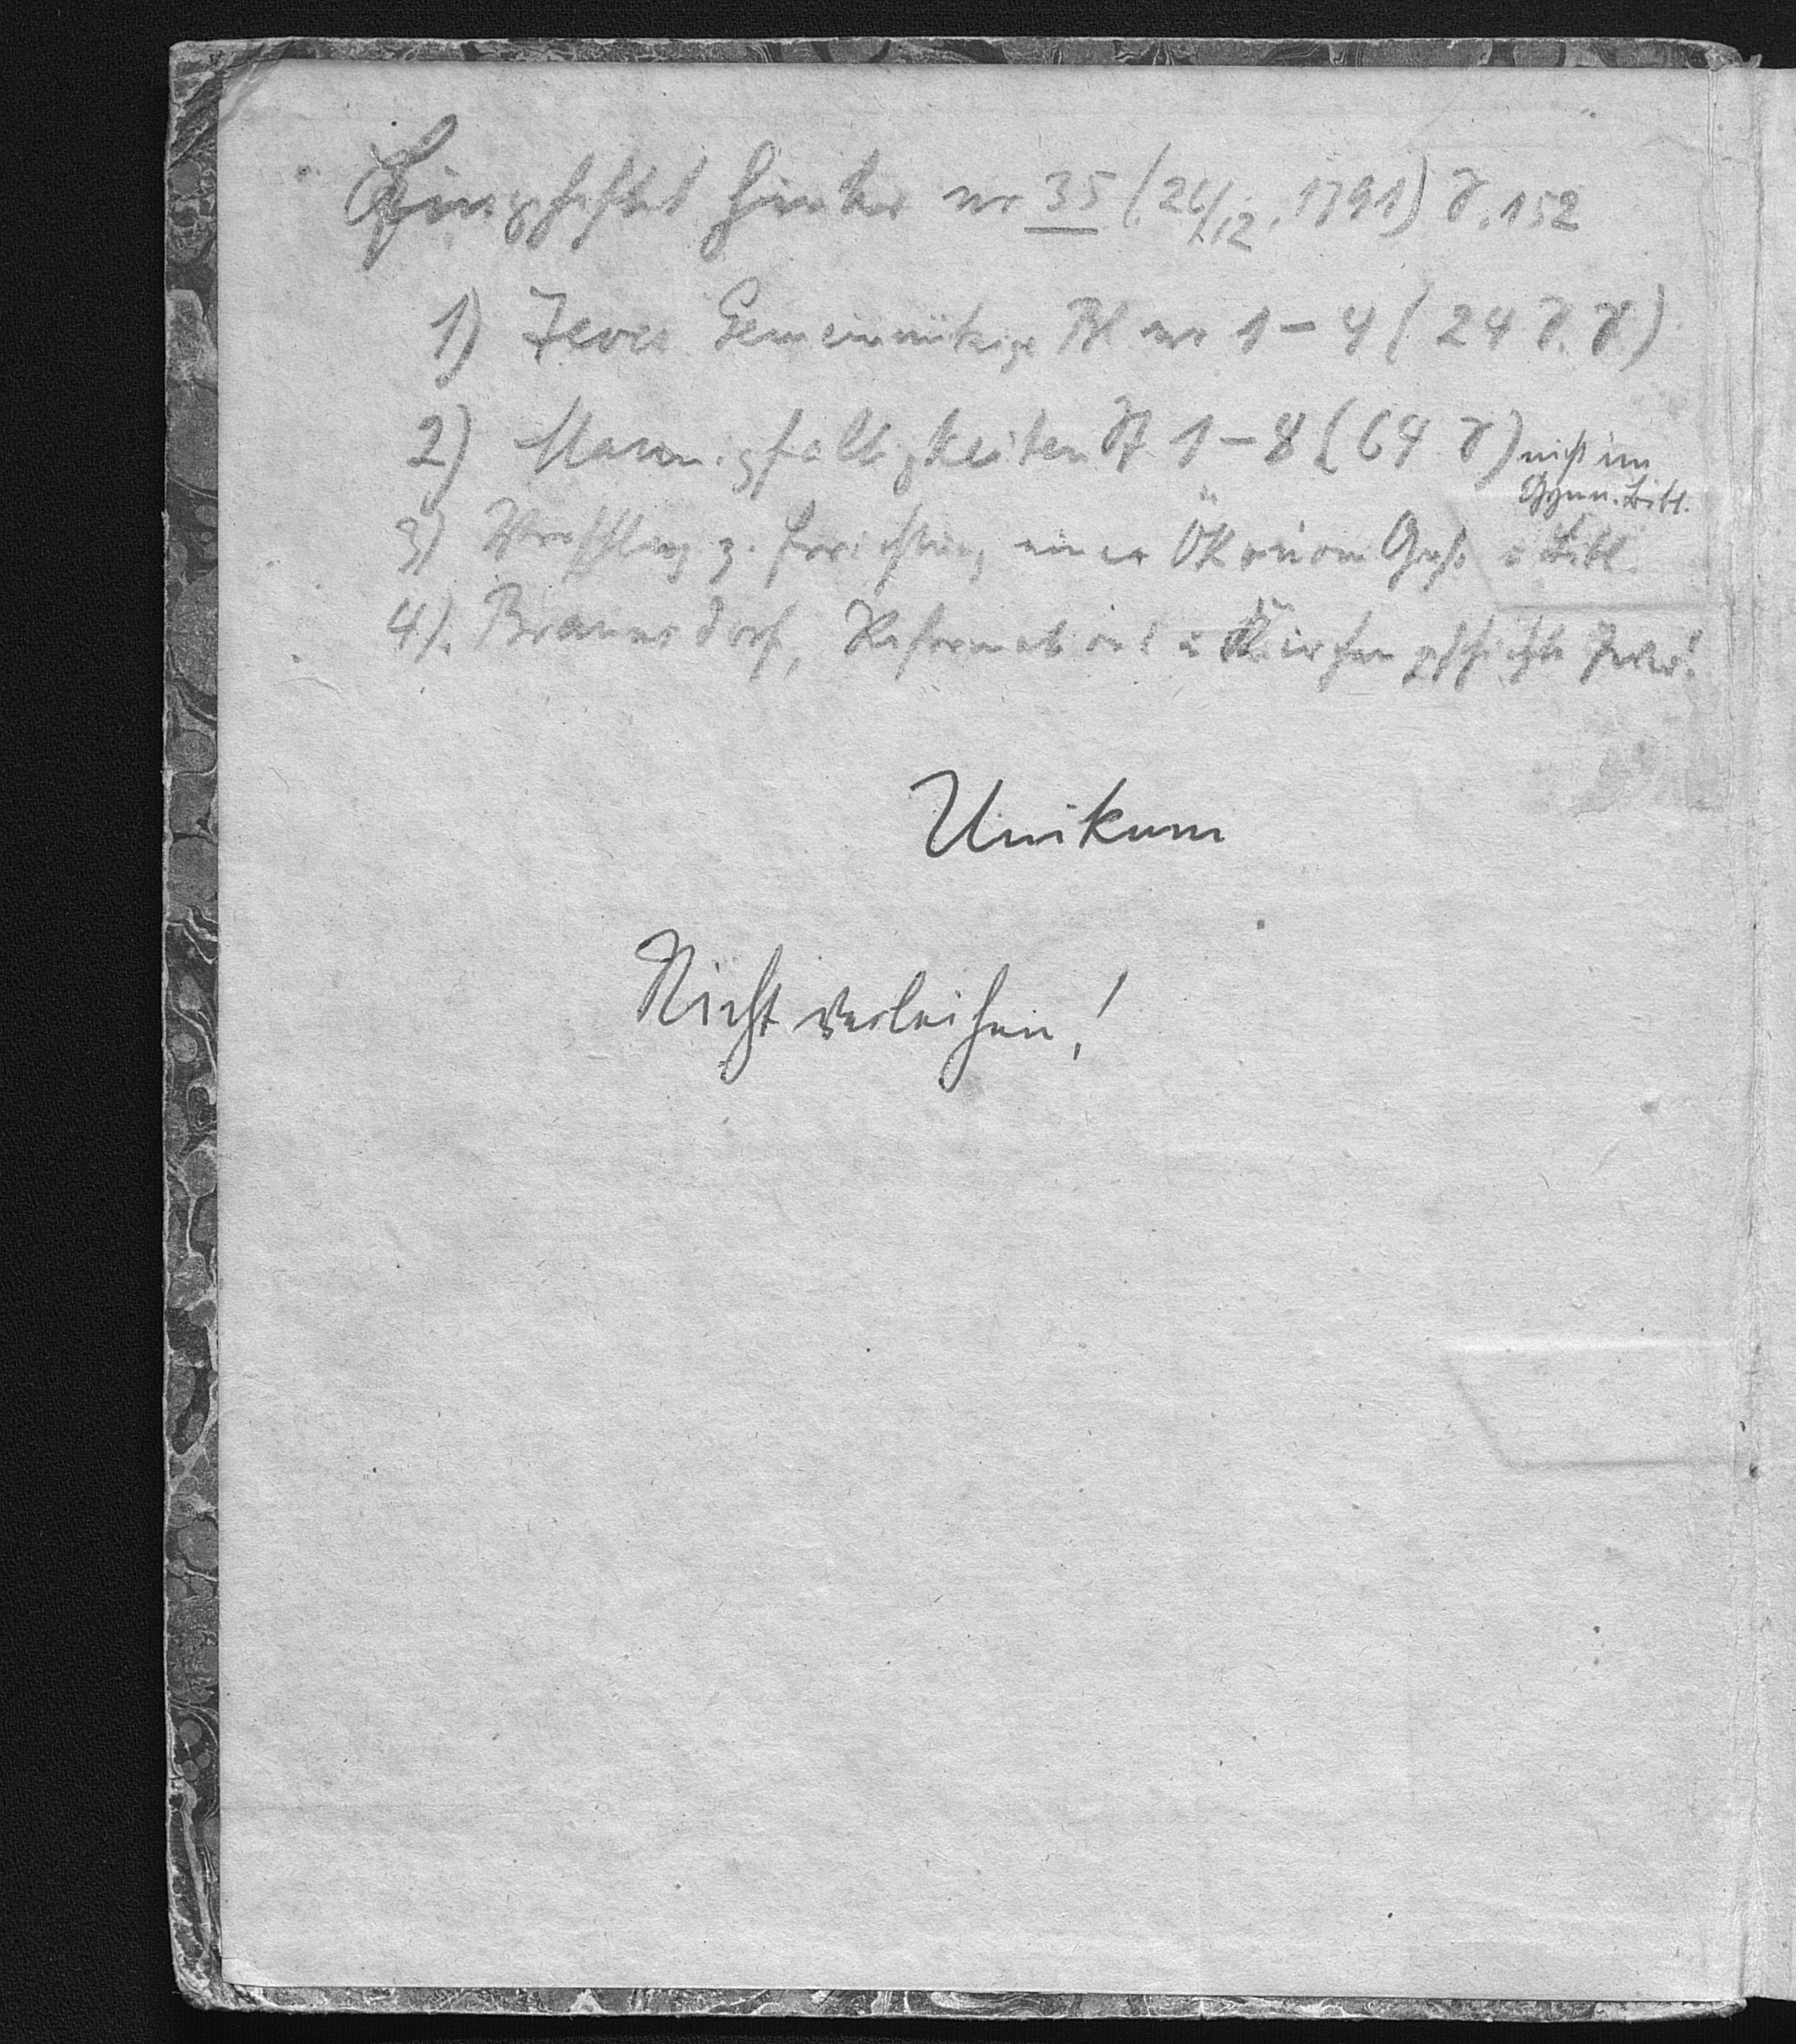 Eingeheftet hinter nr 35 (26/12. 1791) S. 152
1) Jever. Gemeinnützige Bl nr 1-4 (24 S. S.)
2) Mannigfaltigkeiten St 1-8 (64 S) nicht im
Gymn. Bibl.
3) Vorschlag z. Errichtung einer Ökonom Ges. u Bibl.
4). Braunsdorf, Reformat u Kirchengeschichte Jever!
Unikum
Nicht verleihen!